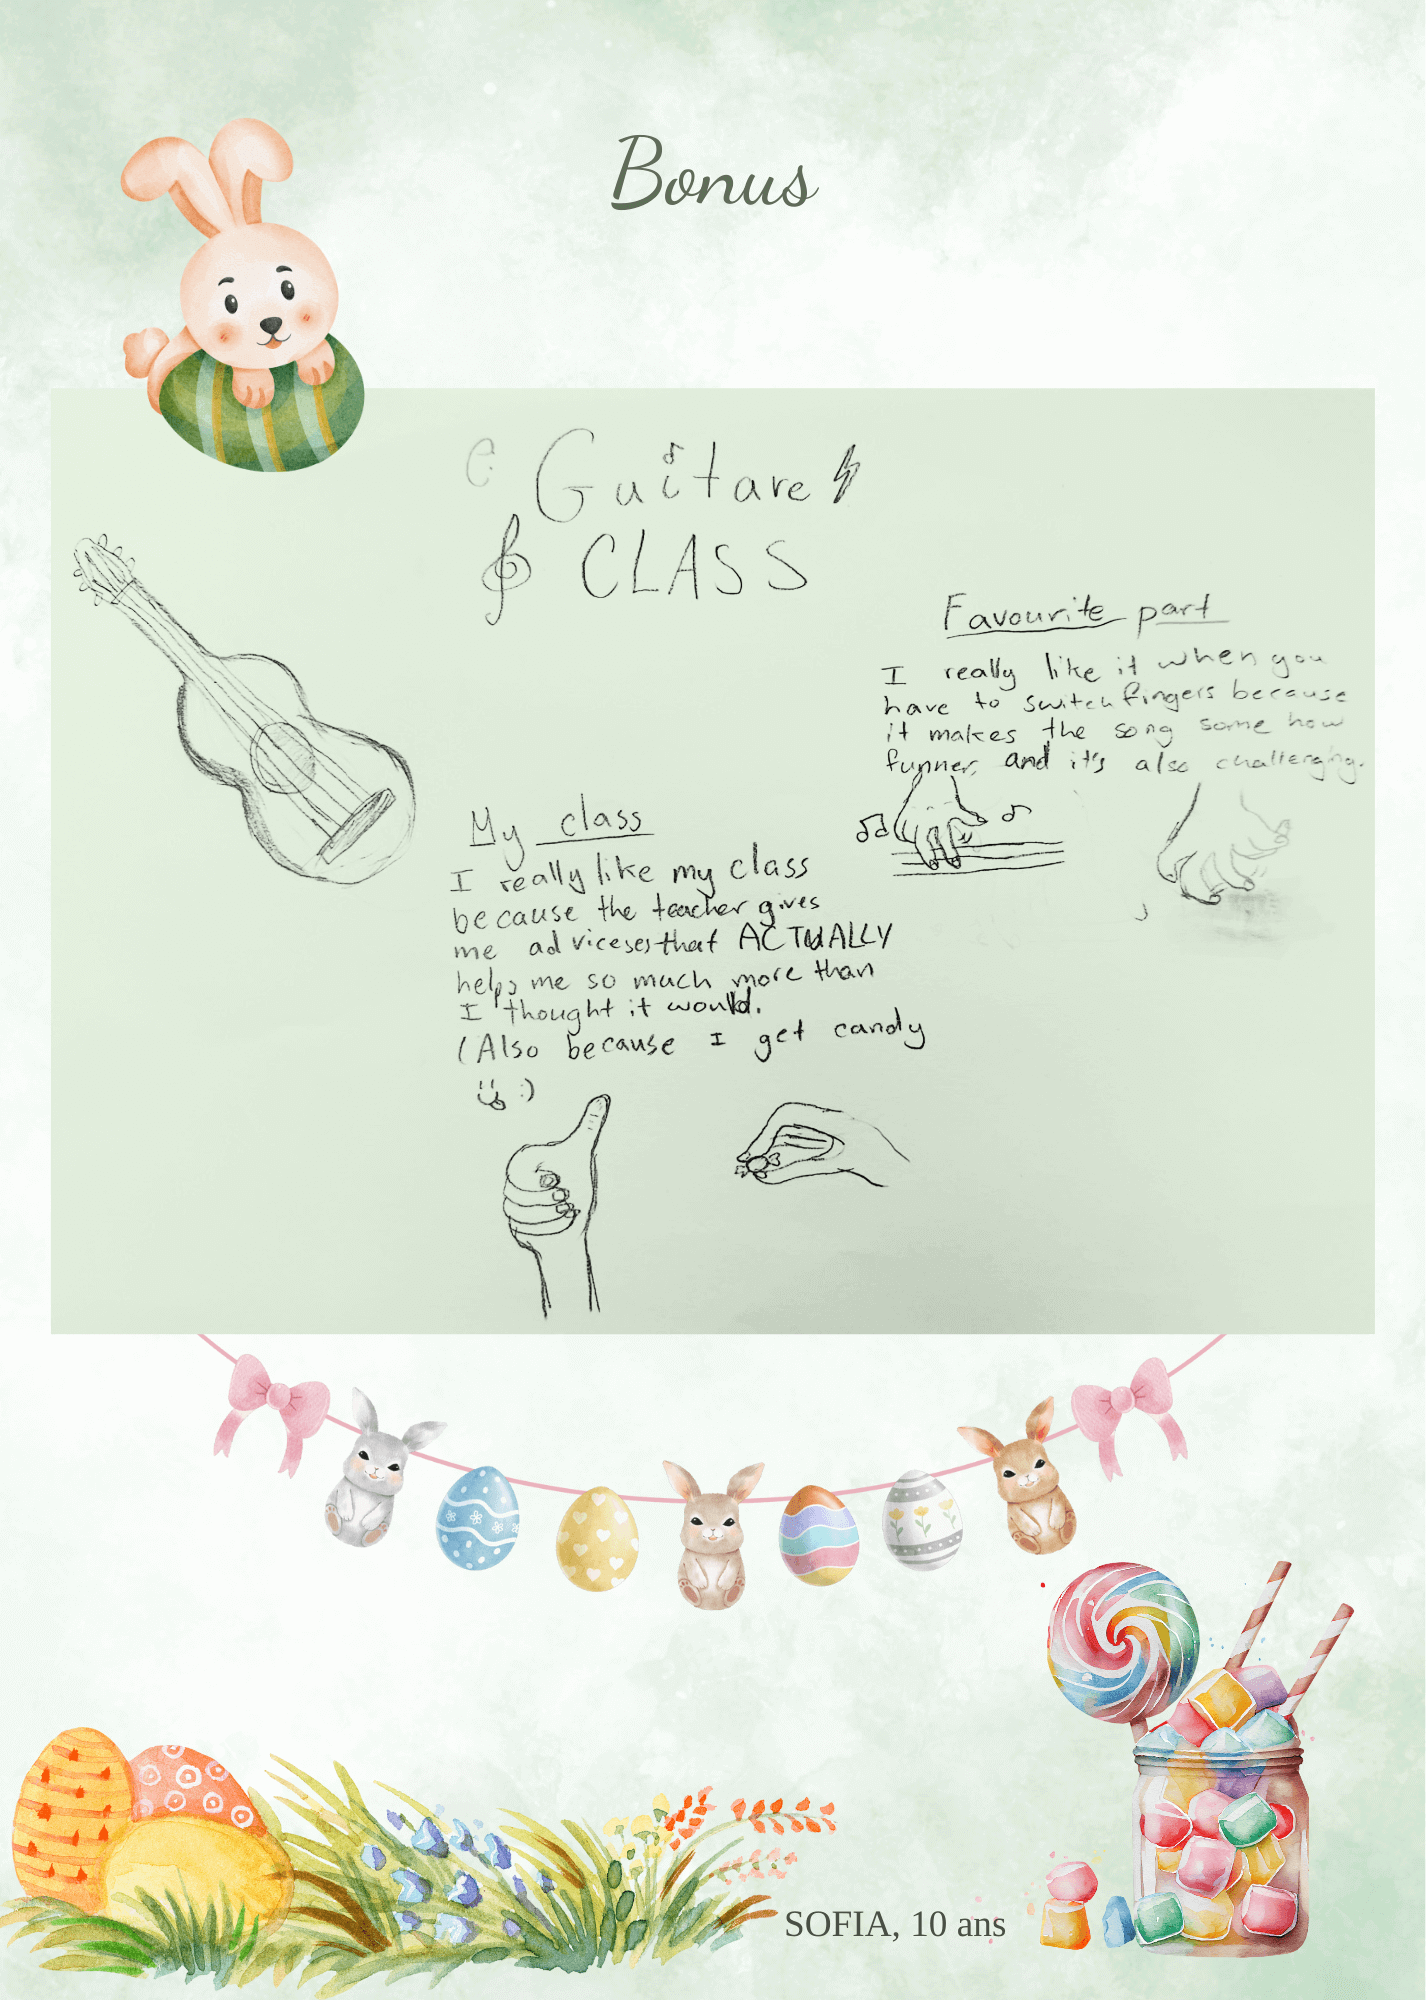 Bonus
Guitare
CLASS
Favourite part
I really like it when you
have to switch fingers because
it makes the song some how
funner, and it's also challenging.
My class
I really like my class
because the teacher gives
me adviceses that ACTUALLY
helps me so much more than
I thought it would.
(Also because I get candy
:)
SOFIA, 10 ans